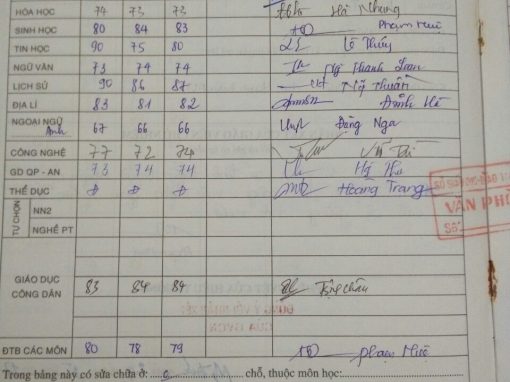 HÓA HỌC 74 73 73 Hà Nhung
SINH HỌC 80 84 83 Phạm Huệ
TIN HỌC 90 75 80 Lê Thúy
NGỮ VĂN 73 74 74 Thanh
LỊCH SỬ 90 86 87 Thuần
ĐỊA LÍ 83 81 82 Đinh Hà
NGOẠI NGỮ Anh 67 66 66 Đăng Nga
CÔNG NGHỆ 77 72 74
GD QP - AN 73 74 74
THỂ DỤC Đ Đ Đ Hoàng Trang
TỰ CHỌN
NN2
NGHỀ PT
VĂN PH
Số
GIÁO DỤC
CÔNG DÂN 83 84 84
CỦA GVCN
ĐTB CÁC MÔN 80 78 79
Trong bảng này có sửa chữa ở: 0 chỗ, thuộc môn học: